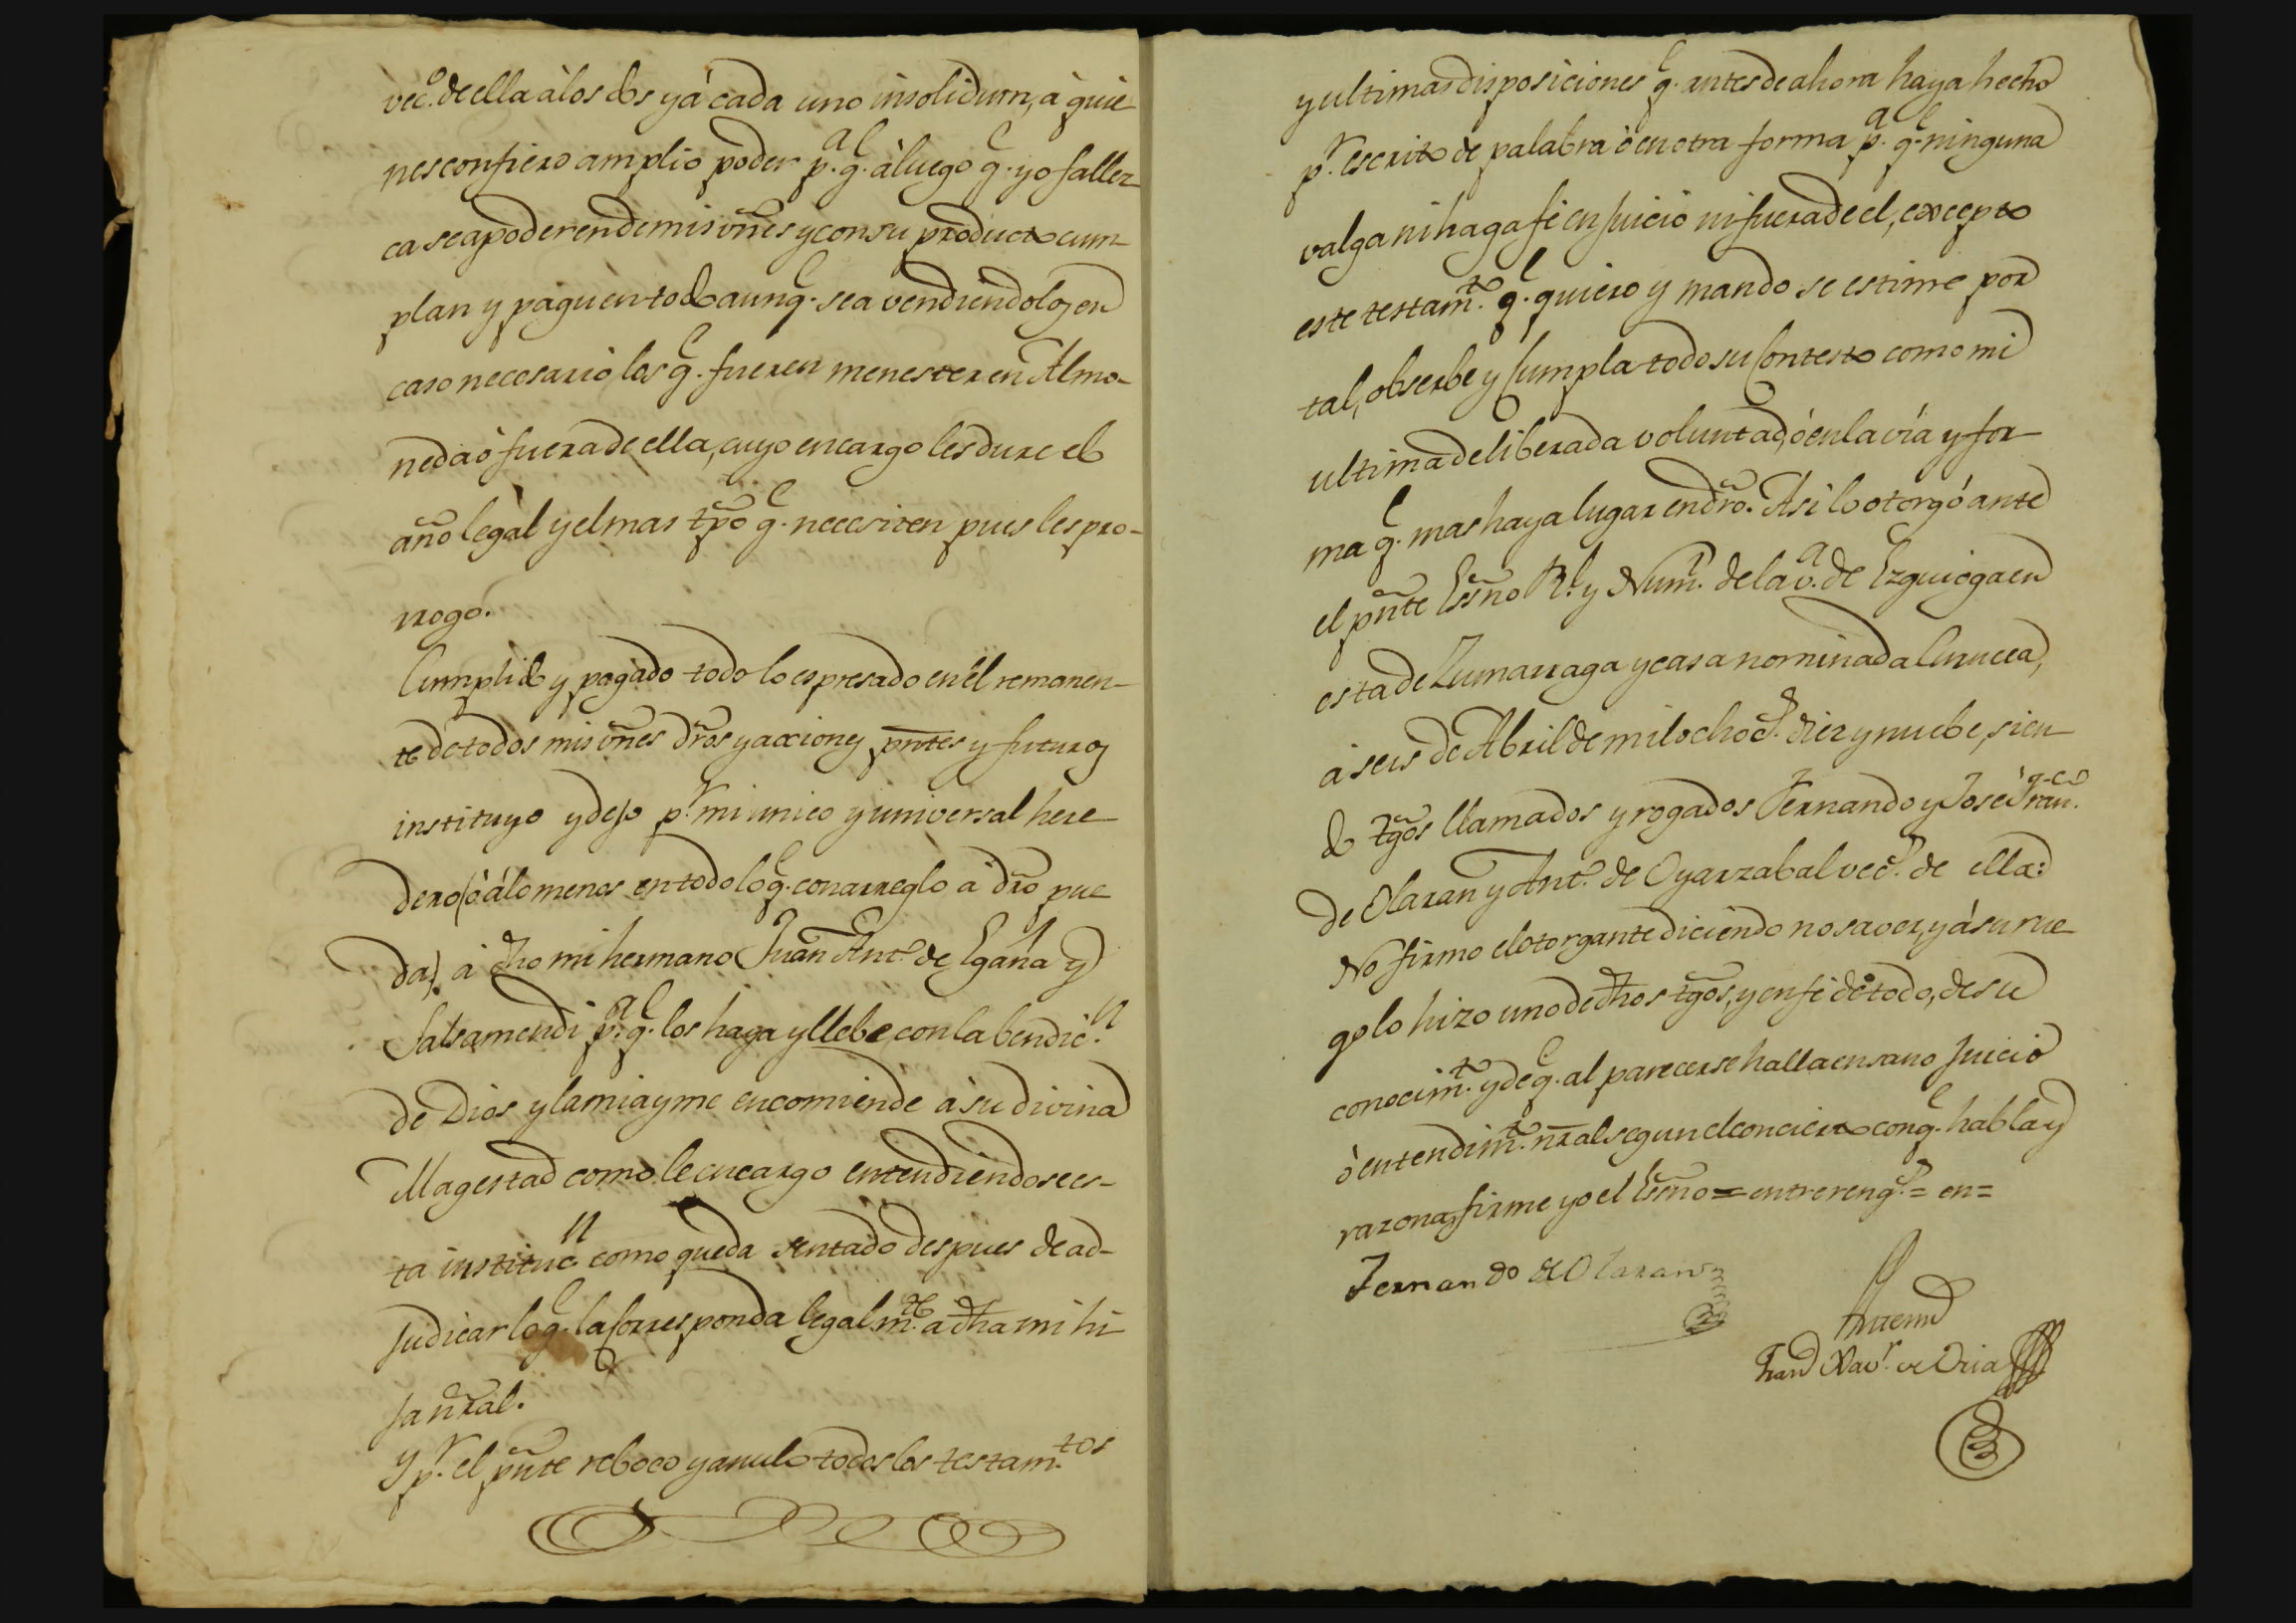 vec.º de ella à los dos y á cada uno insolidum, à quie
nes confiero amplio poder p.ª q.e àluego q.e yo fallez
ca se apoderen de mis vñes y con su producto cum-
plan y paguen todo aunq.e sea vendiendolos en
caso necesario, los q.e fueren menester en Almo-
neda ò fuera de ella, cuyo encargo les dure el
año legal y el mas tpõ q.e necesiten pues les pro-
rrogo.
Cumplido y pagado todo lo espresado en él remanen-
te de todos mis vñes dr̃os y acciones pñtes y futuros
instituyo y dejo p.r mi unico y universal here
dero (ò álo menos en todo lo q.e con arreglo a dr̃o pue
da) à dh̃o mi hermano Juan Ant.º de Egaña y
Salsamendi p.ª q.e los haga y llebe con la bendic.n
de Dios y la mia y me encomiende a su divina
Magestad como le encargo entendiendose es-
ta instituc.n como queda sentado despues de ad-
judicar lo q.e la corresponda legalm.te a dh̃a mi hi
ja ñral.
Y p.r el pñte reboco y anulo todos los testam.tos
y ultimas disposiciones q.e antes de ahora haya hecho
p.r escrito de palabra ò en otra forma p.ª q.e ninguna
valga ni haga fé en juicio ni fuera de el, excepto
este testam.to q.e quiero y mando se estime por
tal, obserbe y cumpla todo su contesto como mi
ultima deliberada voluntad, ó en la via y for-
ma q.e mas haya lugar en dr̃o. Asi lo otorgó ante
el pñte Essño R.l y Num.l de la v.ª de Ezquioga en
esta de Zumarraga y casa nominada Curucea,
à seis de Abril de mil ochoc.s diez y nuebe, sien
do tgõs llamados y rogados Fernando y José Fran.co
de Olaran y Ant.º de Oyarzabal vec.s de ella:
No firmo el otorgante diciendo no saver, y á su rue
go lo hizo uno de dh̃os tgõs, y en fé de todo, de su
conocim.to y de q.e al parecer se halla en sano juicio
ò entendim.to ñral segun el concierto con q.e habla y
razona, firme yo el Essño = entrereng.s = en =
Fernando de Olaran
Antemi
Fran.co Xav.r de Oria